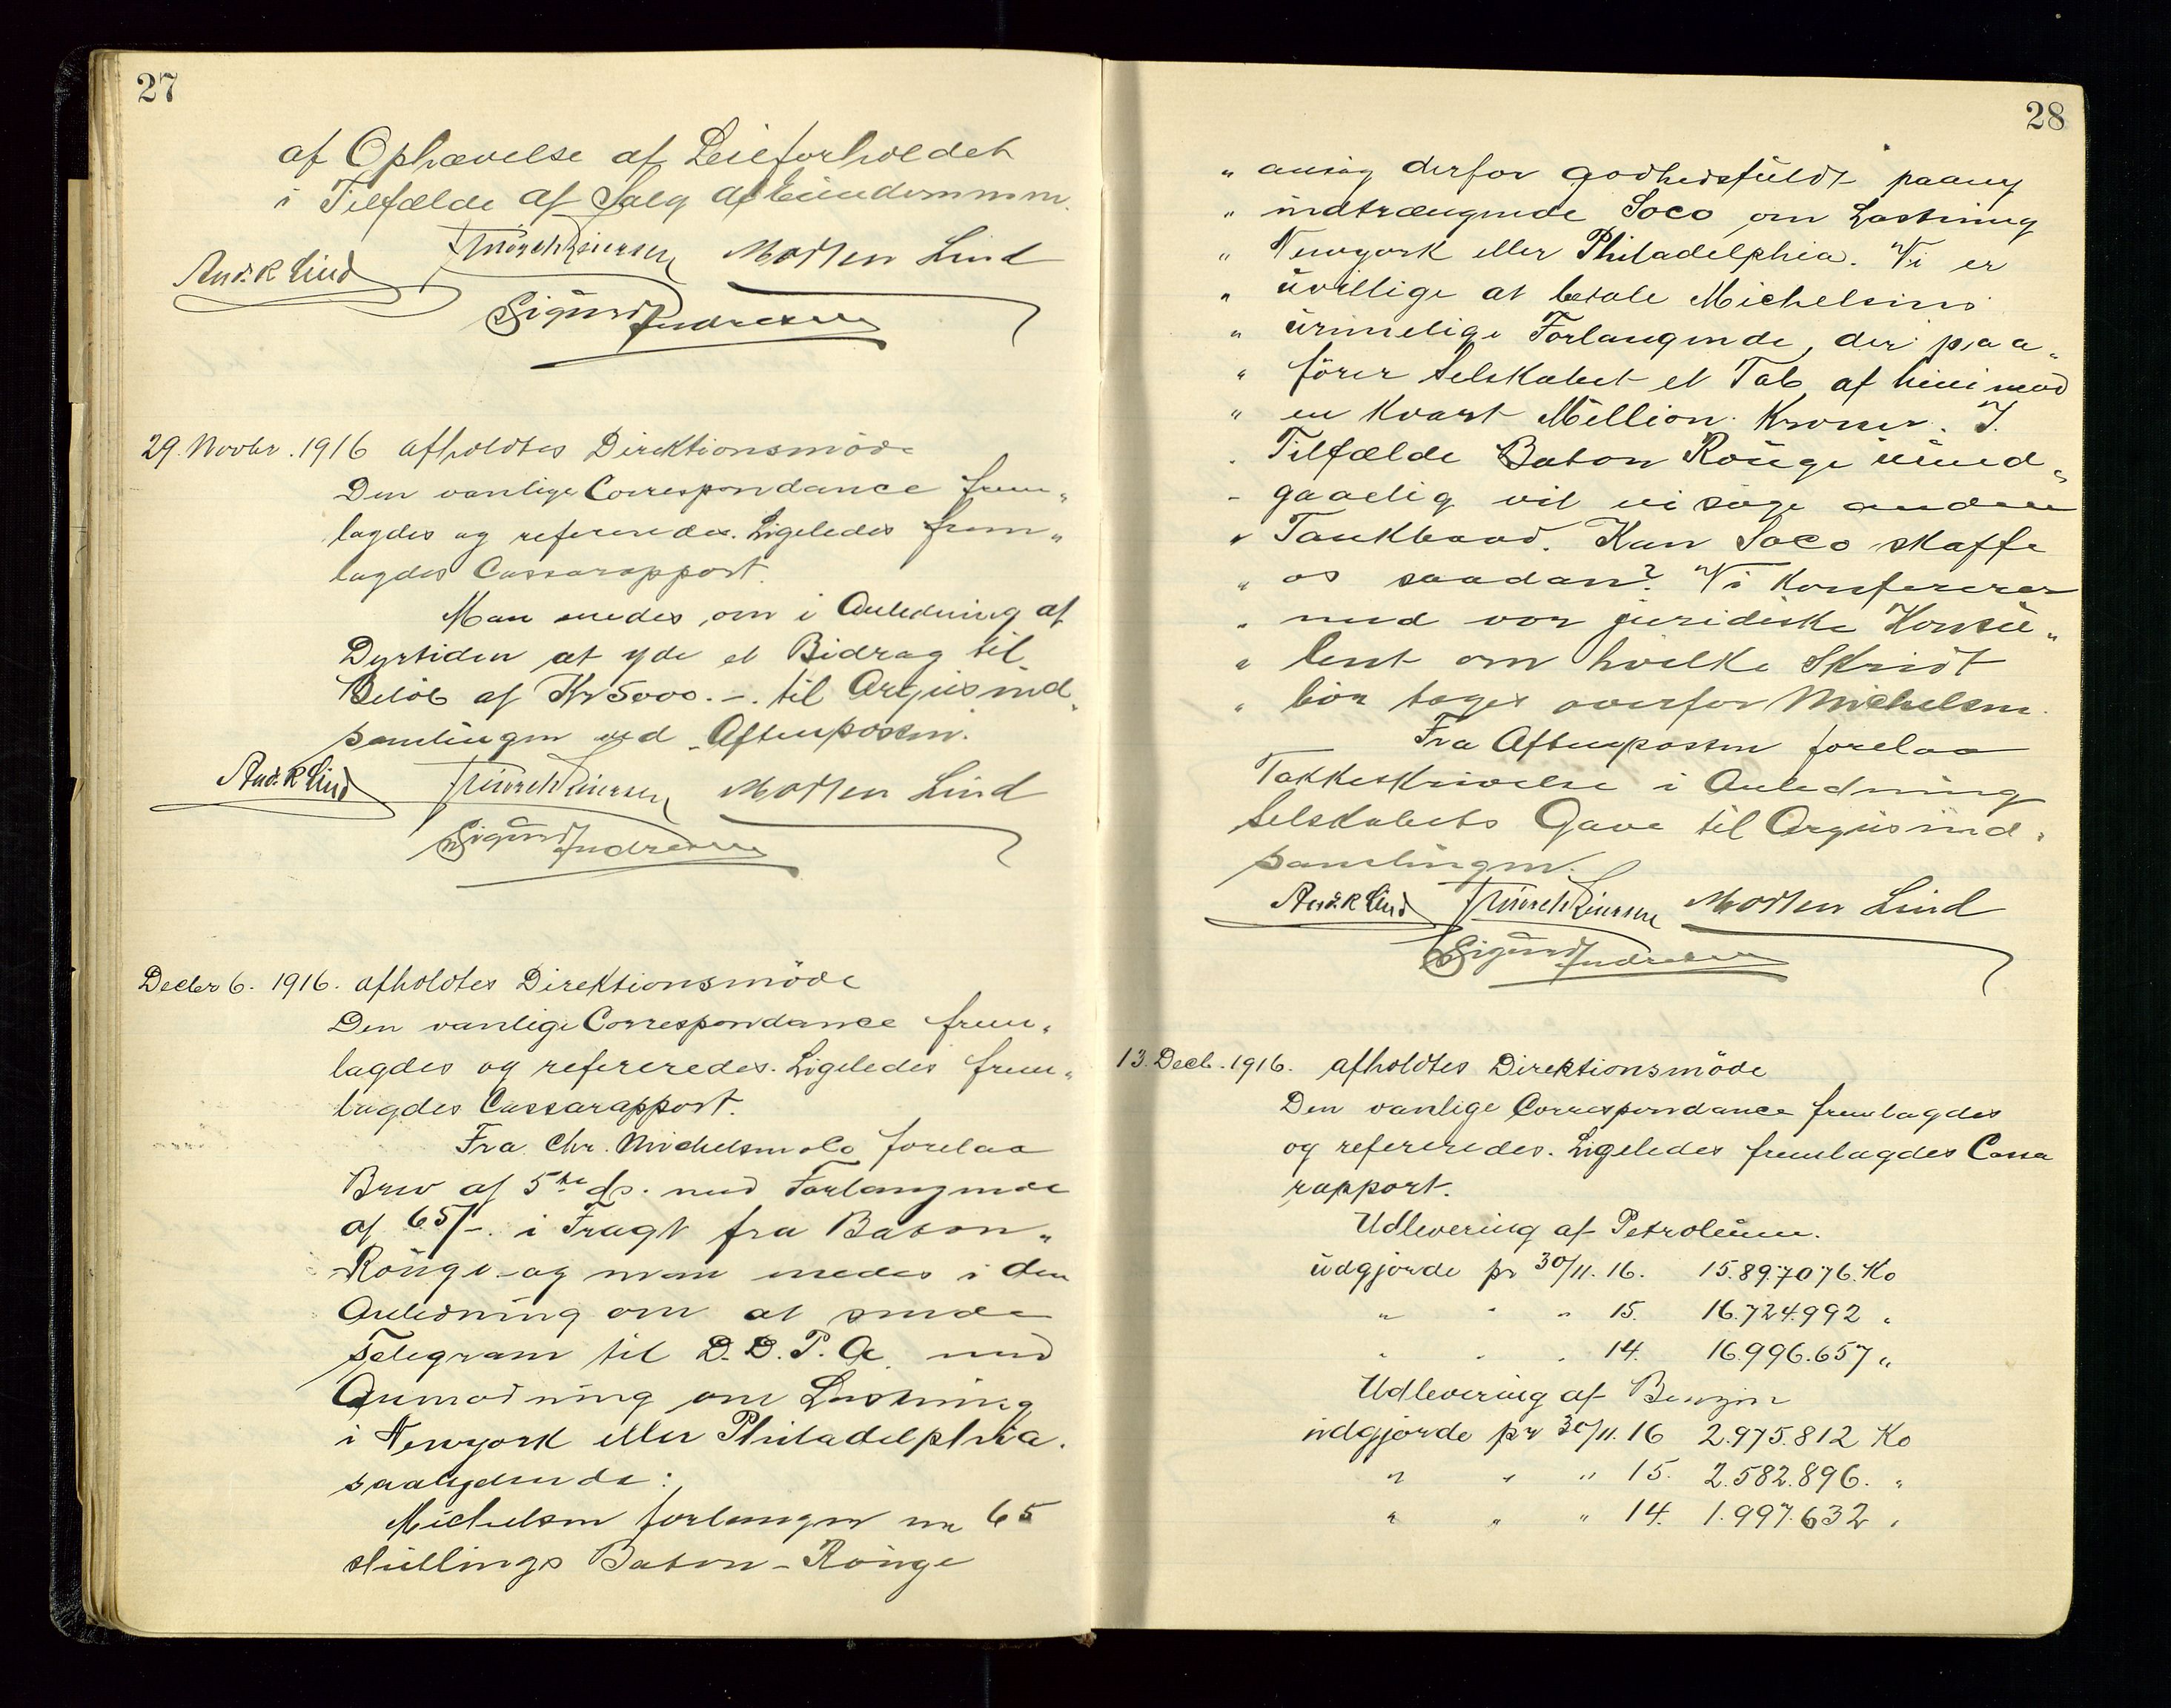 27
af Ophævelse af Leieforholdet
i Tilfælde af Salg af Eiendommen.
And. R Lind Morten Lind
Sigurd Andresen
29. Novbr. 1916 afholdtes Direktionsmöde
Den vanlige Correspondance frem„
lagdes og refereredes. Ligeledes frem„
lagdes Cassarapport.
Man enedes om i Anledning af
Dyrtiden at yde et Bidrag til
Belöb af Kr 5000.-. til Argus ind„
samlingen ved Aftenposten.
And. R Lind Morten Lind
Sigurd Andresen
Decbr 6. 1916. afholdtes Direktionsmöde
Den vanlige Correspondance frem„
lagdes og refereredes. Ligeledes frem„
lagdes Cassarapport.
Fra Chr. Michelsen & Co forelaa
Brev af 5te ds. med Forlangende
af 65/-. i Fragt fra Baton„
Rouge og man enedes i den
Anledning om at sende
Telegram til D.D.P.A. med
Anmodning om Lastning
i Newyork eller Philadelphia.
saalydende:
Michelsen forlanger nu 65
shillings Baton-Rouge
28
„ ansög derfor godhedsfuldt paany
„ indtrængende Soco om Lastning
„ Newyork eller Philadelphia. Vi er
„ uvillige at betale Michelsens
„ urimelige Forlangende, der paa„
„ förer Selskabet et Tab af henimod
„ en kvart Million Kroner. I
„ Tilfælde Baton Rouge uund„
„ gaaelig vil vi söge anden
„ Tankbaad. Kan Soco skaffe
„ os saadan? Vi konfererer
„ med vor juridiske Konsu„
„ lent om hvilke Skridt
„ bör tages overfor Michelsen.
Fra Aftenposten forelaa
Takkeskrivelse i Anledning
Selskabets Gave til Argus ind„
samlingen.
And. R Lind Morten Lind
Sigurd Andresen
13. Decb. 1916. afholdtes Direktionsmöde
Den vanlige Correspondance fremlagdes
og refereredes. Ligeledes fremlagdes Cassa
rapport.
Udlevering af Petroleum.
udgjorde pr 30/11. 16. 15.897.076. Ko
„ „ „ 15. 16.724.992 „
„ „ „ 14. 16.996.657 „
Udlevering af Benzin
udgjorde pr 30/11. 16 2.975.812 Ko
„ „ „ 15. 2.582.896. „
„ „ „ 14. 1.997.632 „